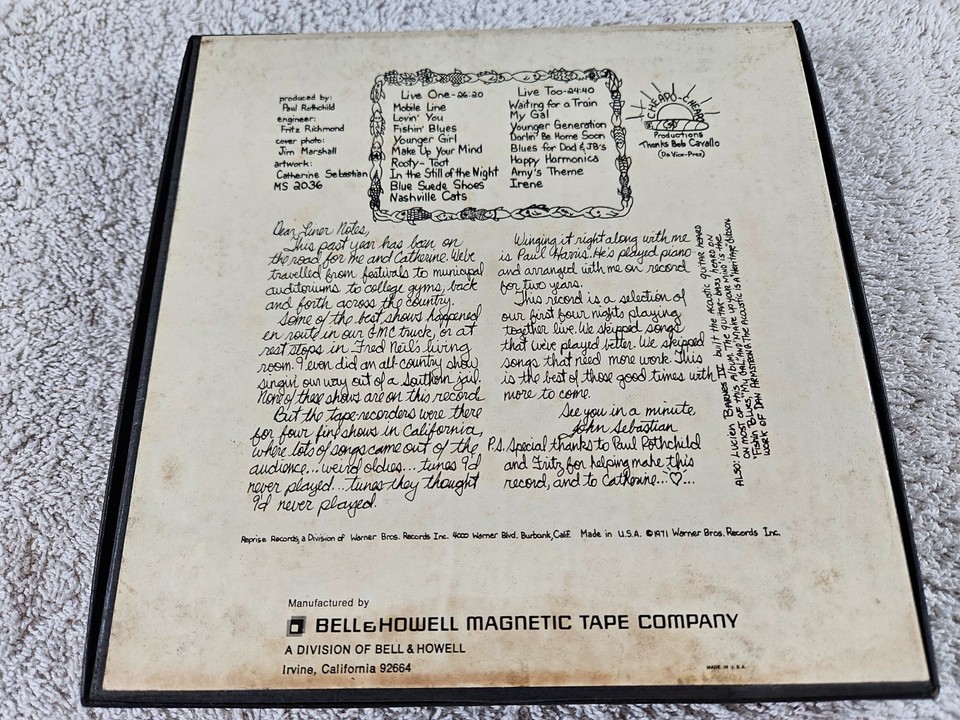 produced by:
Paul Rothchild
engineer:
Fritz Richmond
cover photo:
Jim Marshall
artwork:
Catherine Sebastian
MS 2036
Live One-26:20
Mobile Line
Lovin' You
Fishin' Blues
Younger Girl
Make Up Your Mind
Rooty-Toot
In the Still of the Night
Blue Suede Shoes
Nashville Cats
Live Too-24:40
Waiting for a Train
My Gal
Younger Generation
Darlin' Be Home Soon
Blues for Dad & JB's
Happy Harmonica
Amy's Theme
Irene
CHEAPO-CHEAPO
Productions
Thanks Bob Cavallo
(Da Vice-Prez)
Dear Liner Notes,
This past year has been on
the road for me and Catherine. We've
travelled from festivals to municipal
auditoriums to college gyms, back
and forth across the country.
Some of the best shows happened
en route in our GMC truck, or at
rest stops in Fred Neil's living
room. I even did an all-country show
singin' our way out of a Southern jail.
None of these shows are on this record.
But the tape-recorders were there
for four fine shows in California,
where lots of songs came out of the
audience...weird oldies...tunes I'd
never played...tunes they thought
I'd never played.
Winging it right along with me
is Paul Harris. He's played piano
and arranged with me on record
for two years.
This record is a selection of
our first four nights playing
together live. We skipped songs
that we've played better. We skipped
songs that need more work. This
is the best of those good times with
more to come.
See you in a minute,
John Sebastian
P.S. Special thanks to Paul Rothchild
and Fritz for helping make this
record, and to Catherine...♡...
ALSO: Lucien BARNES IV built the acoustic guitar heard
on most of this album. The guitar-bass heard on
"Fishin' Blues," "My Gal," and "Make Up Your Mind" is the
work of Dan Armstrong. The acoustic is a "Heritage" Gibson
Reprise Records, a Division of Warner Bros. Records Inc. 4000 Warner Blvd. Burbank, Calif. Made in U.S.A. ©1971 Warner Bros. Records Inc.
Manufactured by
BELL & HOWELL MAGNETIC TAPE COMPANY
A DIVISION OF BELL & HOWELL
Irvine, California 92664
MADE IN U.S.A.